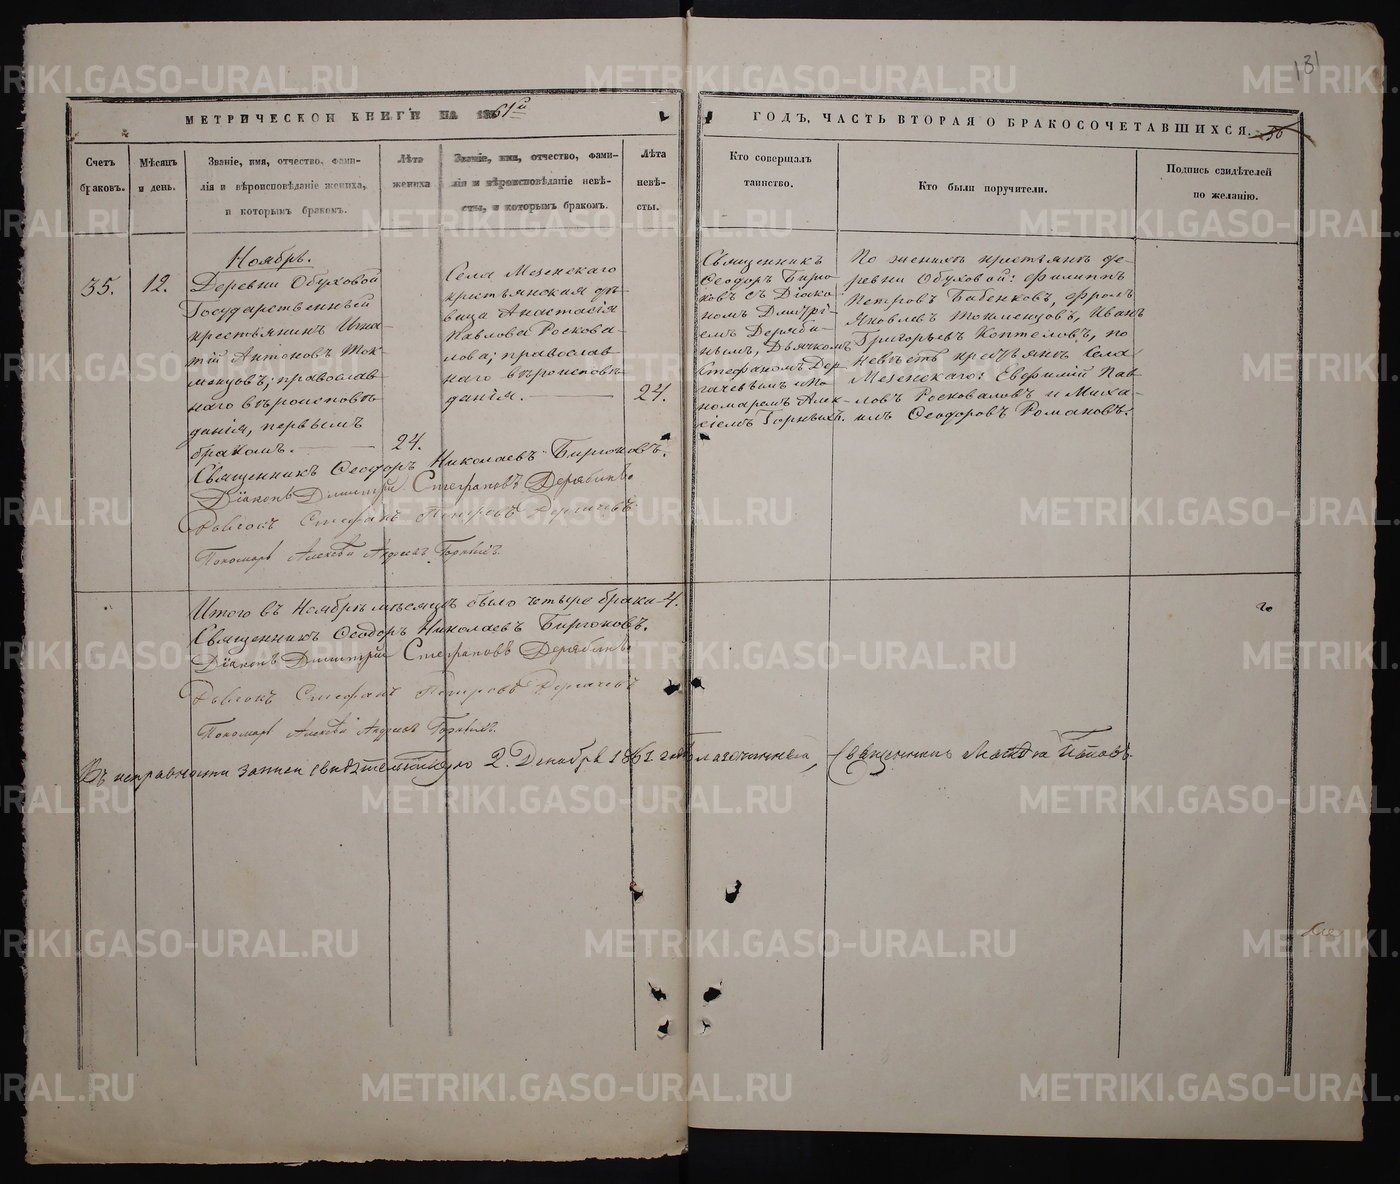 131
МЕТРИЧЕСКОЙ КНИГИ НА 1861й
ГОДЪ, ЧАСТЬ ВТОРАЯ О БРАКОСОЧЕТАВШИХСЯ.
Счетъ браковъ.
Мѣсяцъ и день.
Званіе, имя, отчество, фами-
лія и вѣроисповѣданіе жениха,
и которымъ бракомъ.
Лѣта
жениха
Званіе, имя, отчество, фами-
лія и вѣроисповѣданіе невѣ-
сты, и которымъ бракомъ.
Лѣта
невѣ-
сты.
Кто совершалъ
таинство.
Кто были поручители.
Подпись свидѣтелей
по желанію.
Ноябрь.
35.
12.
Деревни Обуховой
Государственный
крестьянинъ Игна-
тій Антоновъ Ток-
менцовъ; православ-
наго вѣроисповѣ-
данія, первымъ
бракомъ.
24.
Села Мезенскаго
крестьянская дѣ-
вица Анастасія
Павлова Роскова-
лова; православ-
наго вѣроисповѣ-
данія.
24.
Священникъ
Ѳеодоръ Бирю-
ковъ съ Діако-
номъ Димитрі-
емъ Деряби-
нымъ, Дьячкомъ
Стефаномъ Дер-
гачевымъ и По-
номаремъ Алек-
сіемъ Горныхъ.
По женихѣ крестьяне де-
ревни Обуховой: Филиппъ
Петровъ Бабенковъ, Фролъ
Яковлевъ Токменцовъ, Иванъ
Григорьевъ Коптеловъ, по
Невѣстѣ крестьяне Села
Мезенскаго: Евфимій Пав-
ловъ Росковаловъ и Миха-
илъ Ѳеодоровъ Романовъ.
Священникъ Ѳеодоръ Николаевъ Бирюковъ.
Діаконъ Димитрій Стефановъ Дерябинъ
Дьячокъ Стефанъ Петровъ Дергачевъ
Пономарь Алексѣй Андреевъ Горныхъ.
Итого въ Ноябрѣ мѣсяцѣ было четыре брака 4.
Священникъ Ѳеодоръ Николаевъ Бирюковъ.
Діаконъ Димитрій Стефановъ Дерябинъ
Дьячокъ Стефанъ Петровъ Дергачевъ
Пономарь Алексѣй Андреевъ Горныхъ.
Въ исправности записи свидѣтельствую 2. Декабря 1861. года Благочинный, Священникъ
METRIKI.GASO-URAL.RU